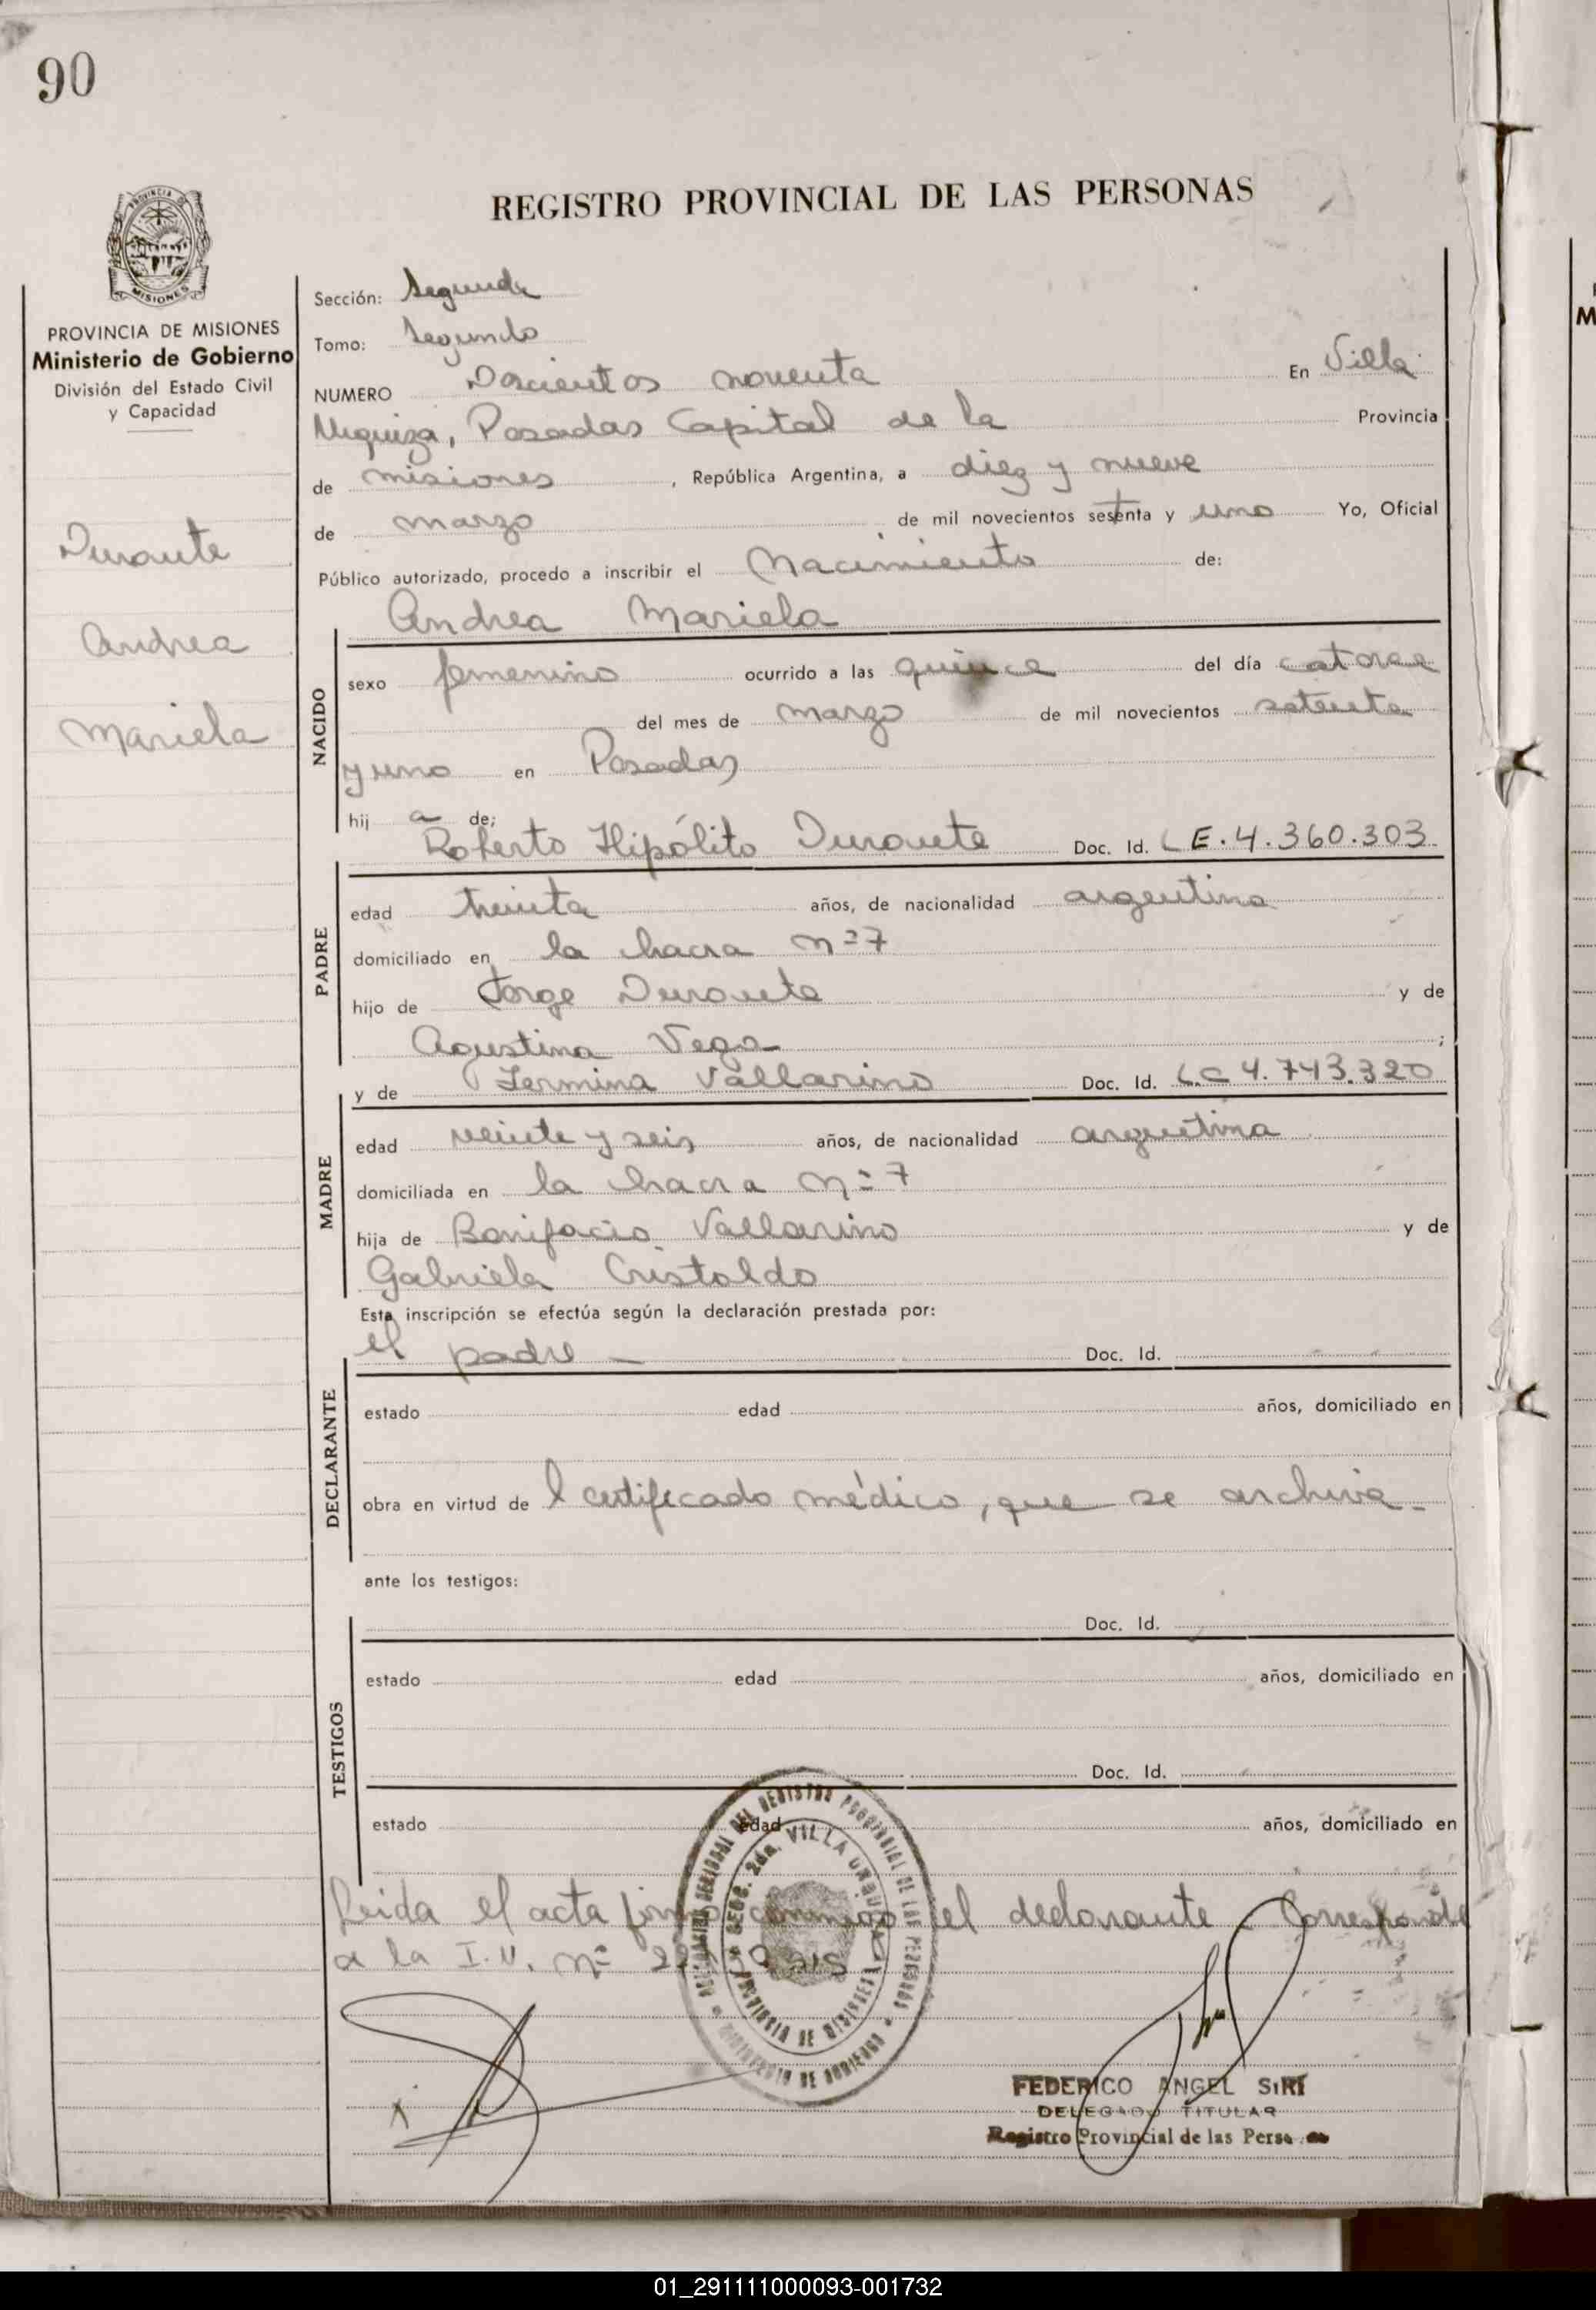 90
REGISTRO PROVINCIAL DE LAS PERSONAS
PROVINCIA
MISIONES
PROVINCIA DE MISIONES
Ministerio de Gobierno
División del Estado Civil
y Capacidad
Durante
Andrea
Mariela
Sección: Segunda
Tomo: Segundo
NUMERO Doscientos noventa En Villa
Urquiza, Posadas Capital de la Provincia
de misiones, República Argentina, a diez y nueve
de marzo de mil novecientos setenta y uno Yo, Oficial
Público autorizado, procedo a inscribir el Nacimiento de:
Andrea Mariela
NACIDO
sexo femenino ocurrido a las quince del día catorce
del mes de marzo de mil novecientos setenta
y uno en Posadas
hij a de;
Roberto Hipólito Durante Doc. Id. L E. 4.360.303
PADRE
edad treinta años, de nacionalidad argentina
domiciliado en la chacra nº 7
hijo de Jorge Durante y de
Agustina Vega ;
y de Fermina Vallarino Doc. Id. L.C 4.743.320
MADRE
edad veinte y seis años, de nacionalidad argentina
domiciliada en la chacra nº 7
hija de Bonifacio Vallarino y de
Gabriela Cristaldo
Esta inscripción se efectúa según la declaración prestada por:
el padre — Doc. Id.
DECLARANTE
estado edad años, domiciliado en
obra en virtud de l certificado médico, que se archiva.-
ante los testigos:
Doc. Id.
TESTIGOS
estado edad años, domiciliado en
Doc. Id.
estado edad años, domiciliado en
Leida el acta firma conmigo el declarante. Corresponde
a la I.U. nº
DEL REGISTRO PROVINCIAL DE LAS PERSONAS
MINISTERIO DE GOBIERNO
SECC. 2da. VILLA URQUIZA
PROVINCIA DE MISIONES
FEDERICO ANGEL SIRI
DELEGADO TITULAR
Registro Provincial de las Perso
01_291111000093-001732